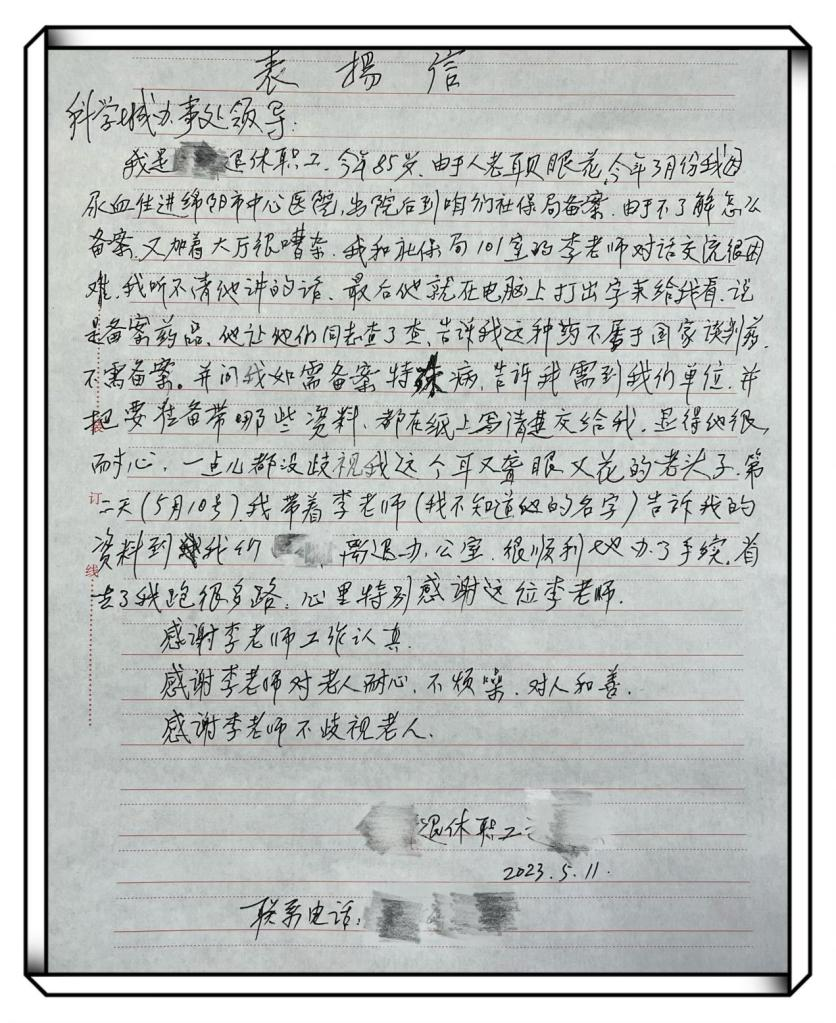 表揚信
科学城办事处领导:
我是 退休职工.今年85岁.由于人老耳聩眼花,今年3月份我因
尿血住进绵阳市中心医院,出院后到咱们社保局备案.由于不了解怎么
备案.又加着大厅很嘈杂.我和社保局101室的李老师对话交流很困
难.我听不清他讲的话.最后他就在电脑上打出字来给我看.说
是备案药品.他让他们同志查了查.告诉我这种药不属于国家谈判药.
不需备案。并问我如需备案特殊病,告诉我需到我们单位.并
把要准备带哪些资料、都在纸上写清楚交给我.显得他很
耐心,一点儿都没歧视我这个耳又聋眼又花的老头子.第
二天(5月10号)我带着李老师(我不知道他的名字)告诉我的
资料到我们 离退办公室.很顺利地办了手续.省
去了我跑很多路.心里特别感谢这位李老师.
感谢李老师工作认真.
感谢李老师对老人耐心.不烦噪.对人和善.
感谢李老师不歧视老人.
退休职工:
2023.5.11.
联系电话:
订
线